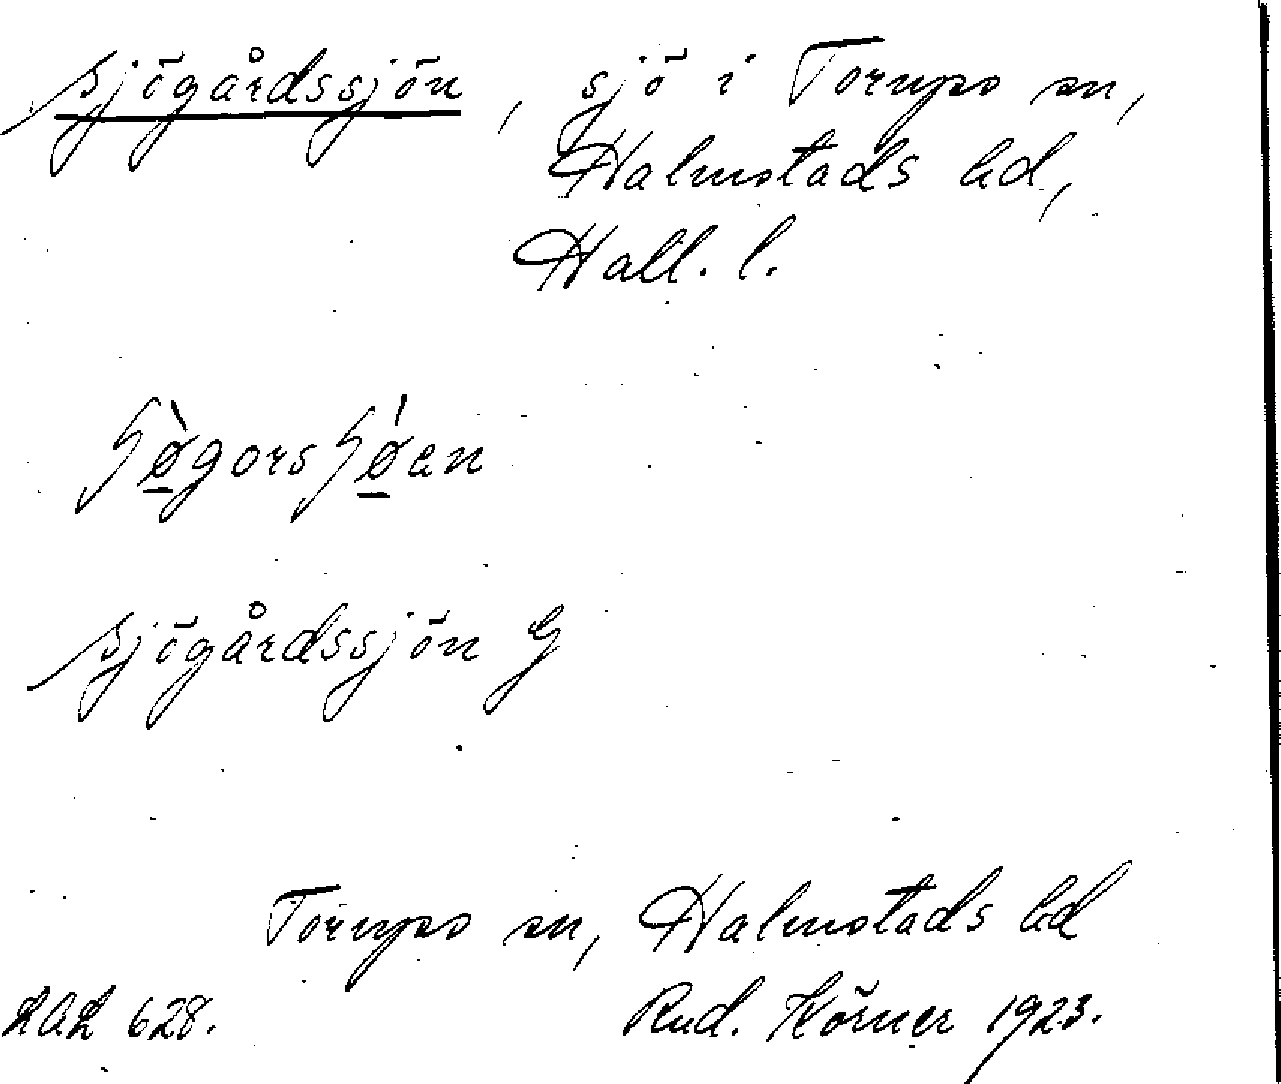 Sjögårdssjön, sjö i Torups sn,
Halmstads hd,
Hall. l.
ʃø̠̀gorsʃǿ̠en
Sjögårdssjön G
Torups sn, Halmstads hd
LAL 628. Rud. Körner 1923.